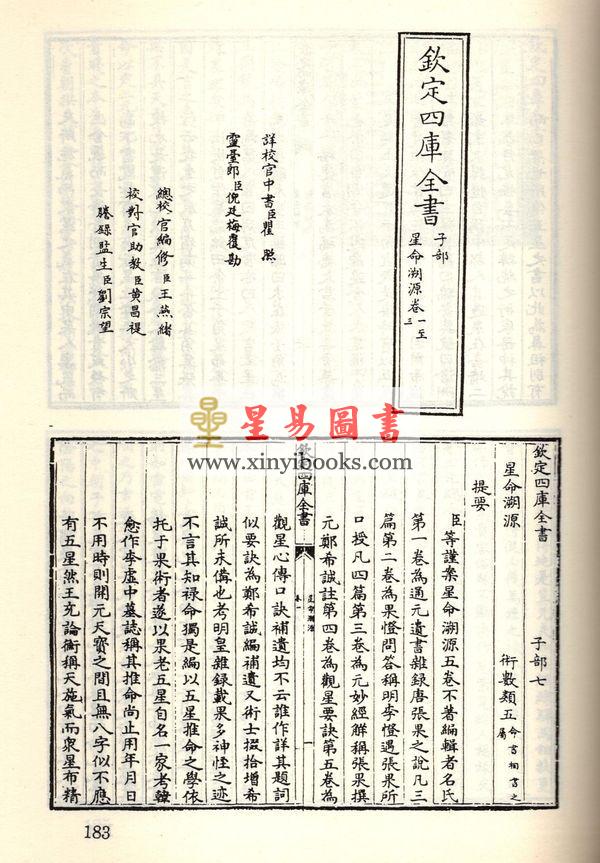 欽定四庫全書
子部
星命溯源卷一至三
詳校官中書臣瞿 照
靈臺郎臣倪廷梅覆勘
總校官編修臣王燕緒
校對官助教臣黄昌禔
謄錄監生臣劉宗望
星易圖書
www.xinyibooks.com
欽定四庫全書 子部七
星命溯源 術數類五 命書相書之屬
提要
臣等謹案星命溯源五卷不著編輯者名氏
第一卷為通元遺書雜録唐張果之說凡三
篇第二卷為果憕問答稱明李憕遇張果所
口授凡四篇第三卷為元妙經解稱張果撰
元鄭希誠註第四卷為觀星要訣第五卷為
欽定四庫全書
卷一
一
觀星心傳口訣補遺均不云誰作詳其題詞
似要訣為鄭希誠編補遺又術士掇拾增希
誠所未備也考明皇雜録載果多神怪之迹
不言其知禄命獨是編以五星推命之學依
托于果術者遂以果老五星自名一家考韓
愈作李虛中墓誌稱其推命尚止用年月日
不用時則開元天寶之間且無八字似不應
有五星然王充論衡稱天施氣而衆星布精
183